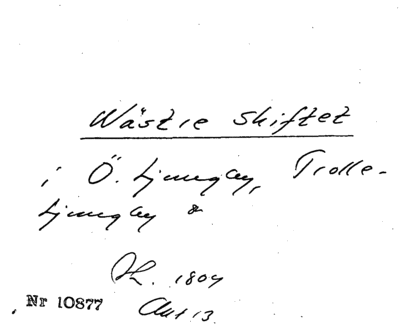 Wästre skiftet
i Ö. Ljungby, Trolle-
ljungby &
1804
Nr 10877
Akt 13